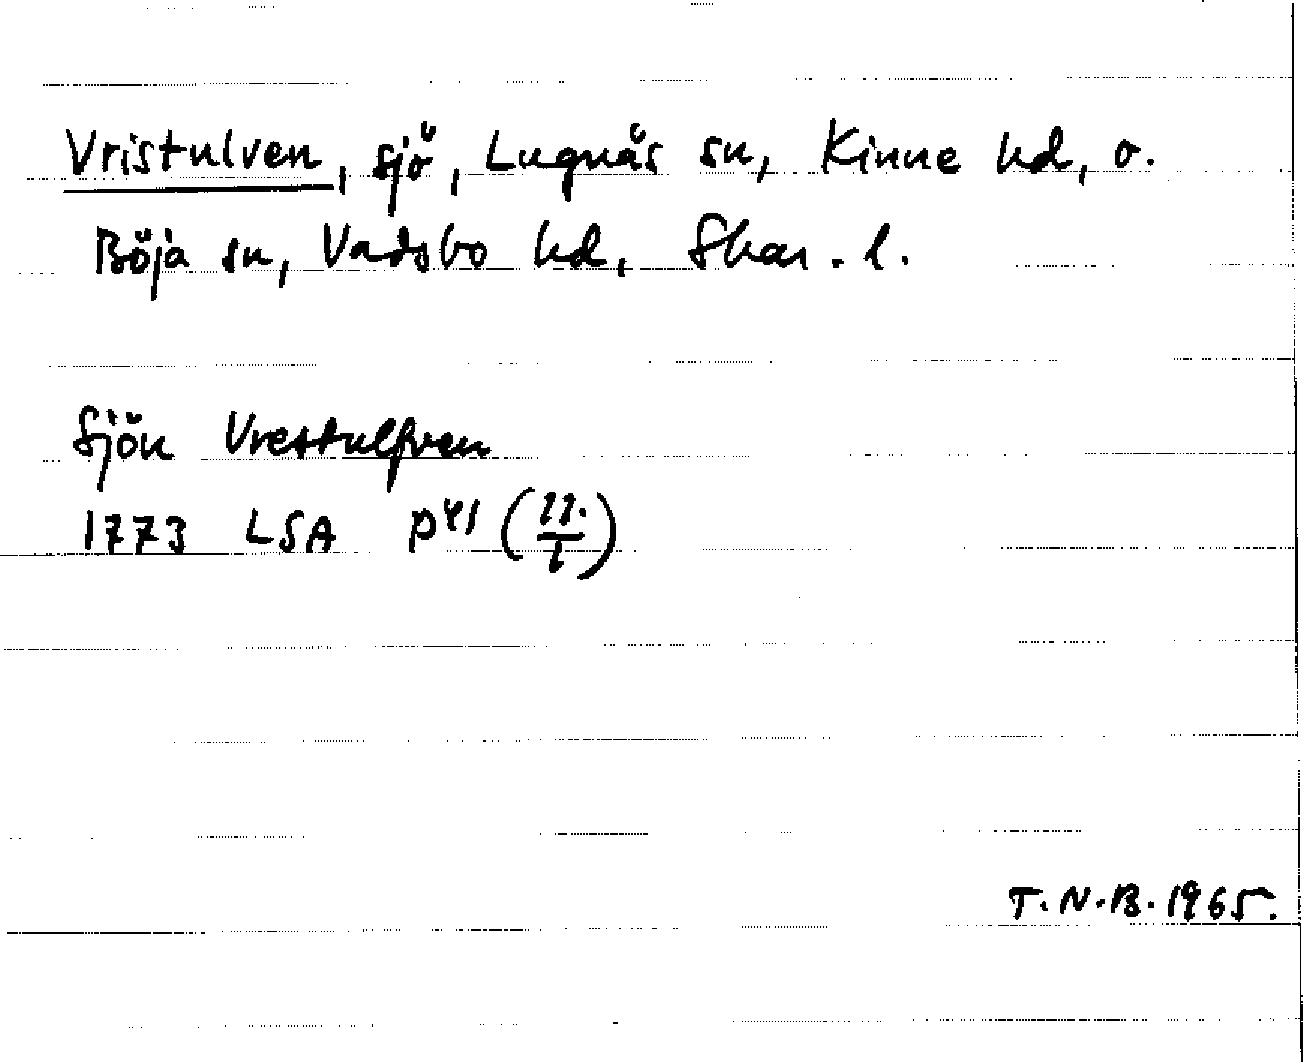 Vristulven, sjö, Lugnås sn, Kinne hd, o.
Böja sn, Vadsbo hd, Skar. l.
Sjön Vrestulfven
1773 LSA P41
T.N.B. 1965.